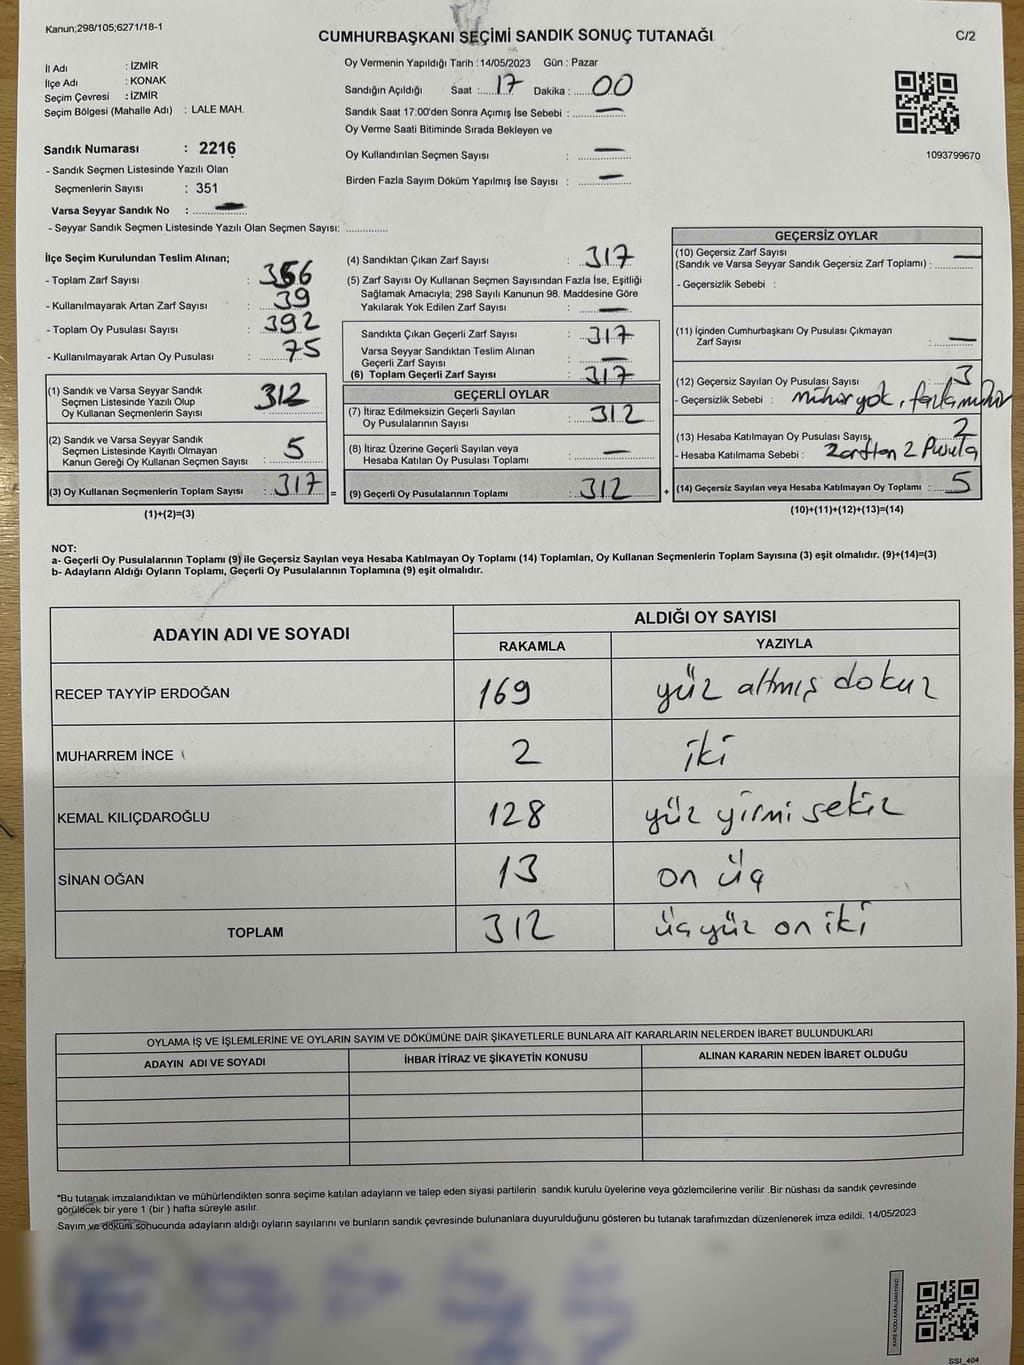 Kanun;298/105;6271/18-1
CUMHURBAŞKANI SEÇİMİ SANDIK SONUÇ TUTANAĞI
C/2
İl Adı : İZMİR
İlçe Adı : KONAK
Seçim Çevresi : İZMİR
Seçim Bölgesi (Mahalle Adı) : LALE MAH.
Sandık Numarası : 2216
- Sandık Seçmen Listesinde Yazılı Olan
Seçmenlerin Sayısı : 351
Varsa Seyyar Sandık No : —
- Seyyar Sandık Seçmen Listesinde Yazılı Olan Seçmen Sayısı: ..............
Oy Vermenin Yapıldığı Tarih : 14/05/2023 Gün : Pazar
Sandığın Açıldığı Saat : 17 Dakika : 00
Sandık Saat 17:00'den Sonra Açımış İse Sebebi : —
Oy Verme Saati Bitiminde Sırada Bekleyen ve
Oy Kullandırılan Seçmen Sayısı : —
Birden Fazla Sayım Döküm Yapılmış İse Sayısı : —
1093799670
İlçe Seçim Kurulundan Teslim Alınan;
- Toplam Zarf Sayısı : 356
- Kullanılmayarak Artan Zarf Sayısı : 39
- Toplam Oy Pusulası Sayısı : 392
- Kullanılmayarak Artan Oy Pusulası : 75
(1) Sandık ve Varsa Seyyar Sandık
Seçmen Listesinde Yazılı Olup
Oy Kullanan Seçmenlerin Sayısı : 312
(2) Sandık ve Varsa Seyyar Sandık
Seçmen Listesinde Kayıtlı Olmayan
Kanun Gereği Oy Kullanan Seçmen Sayısı : 5
(3) Oy Kullanan Seçmenlerin Toplam Sayısı : 317 =
(1)+(2)=(3)
(4) Sandıktan Çıkan Zarf Sayısı : 317
(5) Zarf Sayısı Oy Kullanan Seçmen Sayısından Fazla İse, Eşitliği
Sağlamak Amacıyla; 298 Sayılı Kanunun 98. Maddesine Göre
Yakılarak Yok Edilen Zarf Sayısı : —
Sandıkta Çıkan Geçerli Zarf Sayısı : 317
Varsa Seyyar Sandıktan Teslim Alınan
Geçerli Zarf Sayısı : —
(6) Toplam Geçerli Zarf Sayısı : 317
GEÇERLİ OYLAR
(7) İtiraz Edilmeksizin Geçerli Sayılan
Oy Pusulalarının Sayısı : 312
(8) İtiraz Üzerine Geçerli Sayılan veya
Hesaba Katılan Oy Pusulası Toplamı : —
(9) Geçerli Oy Pusulalarının Toplamı : 312 +
GEÇERSİZ OYLAR
(10) Geçersiz Zarf Sayısı
(Sandık ve Varsa Seyyar Sandık Geçersiz Zarf Toplamı) : —
- Geçersizlik Sebebi :
(11) İçinden Cumhurbaşkanı Oy Pusulası Çıkmayan
Zarf Sayısı : —
(12) Geçersiz Sayılan Oy Pusulası Sayısı : 3
- Geçersizlik Sebebi : mühür yok, fazla mühür
(13) Hesaba Katılmayan Oy Pusulası Sayısı 2
- Hesaba Katılmama Sebebi : Zarftan 2 Pusula
(14) Geçersiz Sayılan veya Hesaba Katılmayan Oy Toplamı : 5
(10)+(11)+(12)+(13)=(14)
NOT:
a- Geçerli Oy Pusulalarının Toplamı (9) ile Geçersiz Sayılan veya Hesaba Katılmayan Oy Toplamı (14) Toplamları, Oy Kullanan Seçmenlerin Toplam Sayısına (3) eşit olmalıdır. (9)+(14)=(3)
b- Adayların Aldığı Oyların Toplamı, Geçerli Oy Pusulalarının Toplamına (9) eşit olmalıdır.
ADAYIN ADI VE SOYADI
ALDIĞI OY SAYISI
RAKAMLA YAZIYLA
RECEP TAYYİP ERDOĞAN 169 yüz altmış dokuz
MUHARREM İNCE 2 iki
KEMAL KILIÇDAROĞLU 128 yüz yirmi sekiz
SİNAN OĞAN 13 on üç
TOPLAM 312 üç yüz on iki
OYLAMA İŞ VE İŞLEMLERİNE VE OYLARIN SAYIM VE DÖKÜMÜNE DAİR ŞİKAYETLERLE BUNLARA AİT KARARLARIN NELERDEN İBARET BULUNDUKLARI
ADAYIN ADI VE SOYADI İHBAR İTİRAZ VE ŞİKAYETİN KONUSU ALINAN KARARIN NEDEN İBARET OLDUĞU
*Bu tutanak imzalandıktan ve mühürlendikten sonra seçime katılan adayların ve talep eden siyasi partilerin sandık kurulu üyelerine veya gözlemcilerine verilir .Bir nüshası da sandık çevresinde
görülecek bir yere 1 (bir ) hafta süreyle asılır.
Sayım ve döküm sonucunda adayların aldığı oyların sayılarını ve bunların sandık çevresinde bulunanlara duyurulduğunu gösteren bu tutanak tarafımızdan düzenlenerek imza edildi. 14/05/2023
KARE KODU KARALAMAYINIZ!
SSI_404